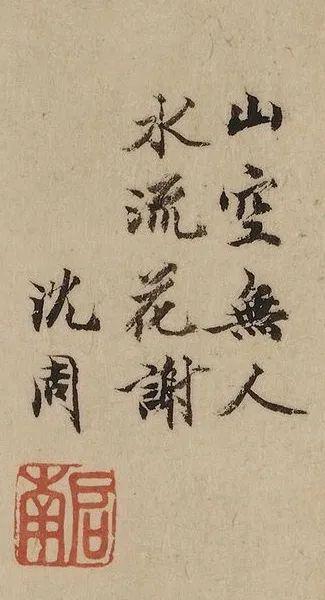 山空無人
水流花謝
沈周
啟南